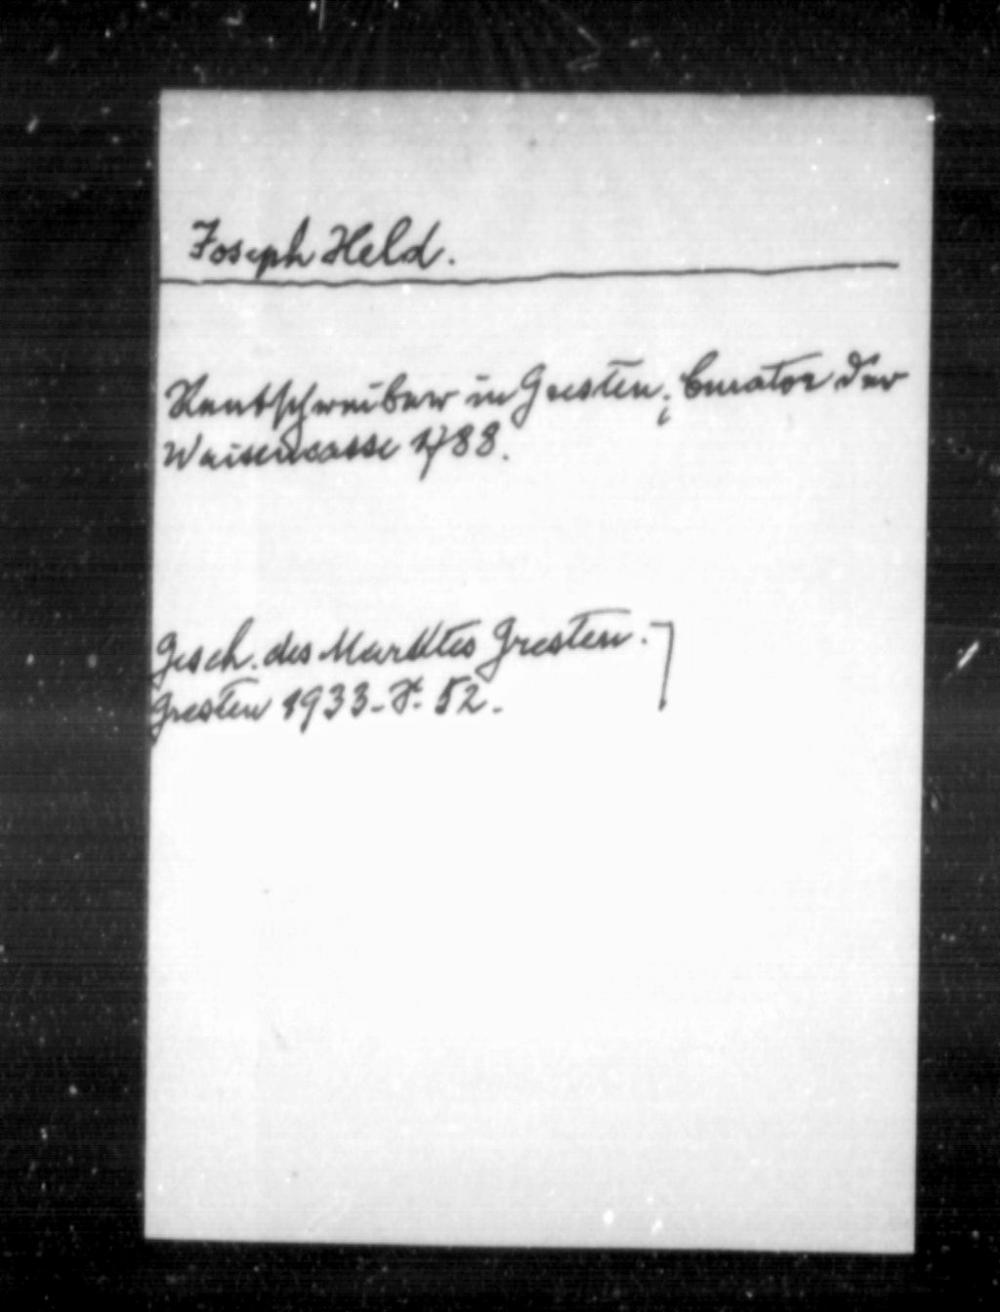 Joseph Held.
Rentschreiber in Gresten; Curator der
Waisencasse 1788.
Gesch. des Marktes Gresten.
Gresten 1933. S. 52.